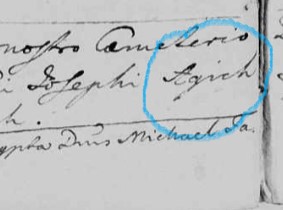 nostro Cœmeterio
Josephi Agich
h.
ypta Dnus Michael Ja.